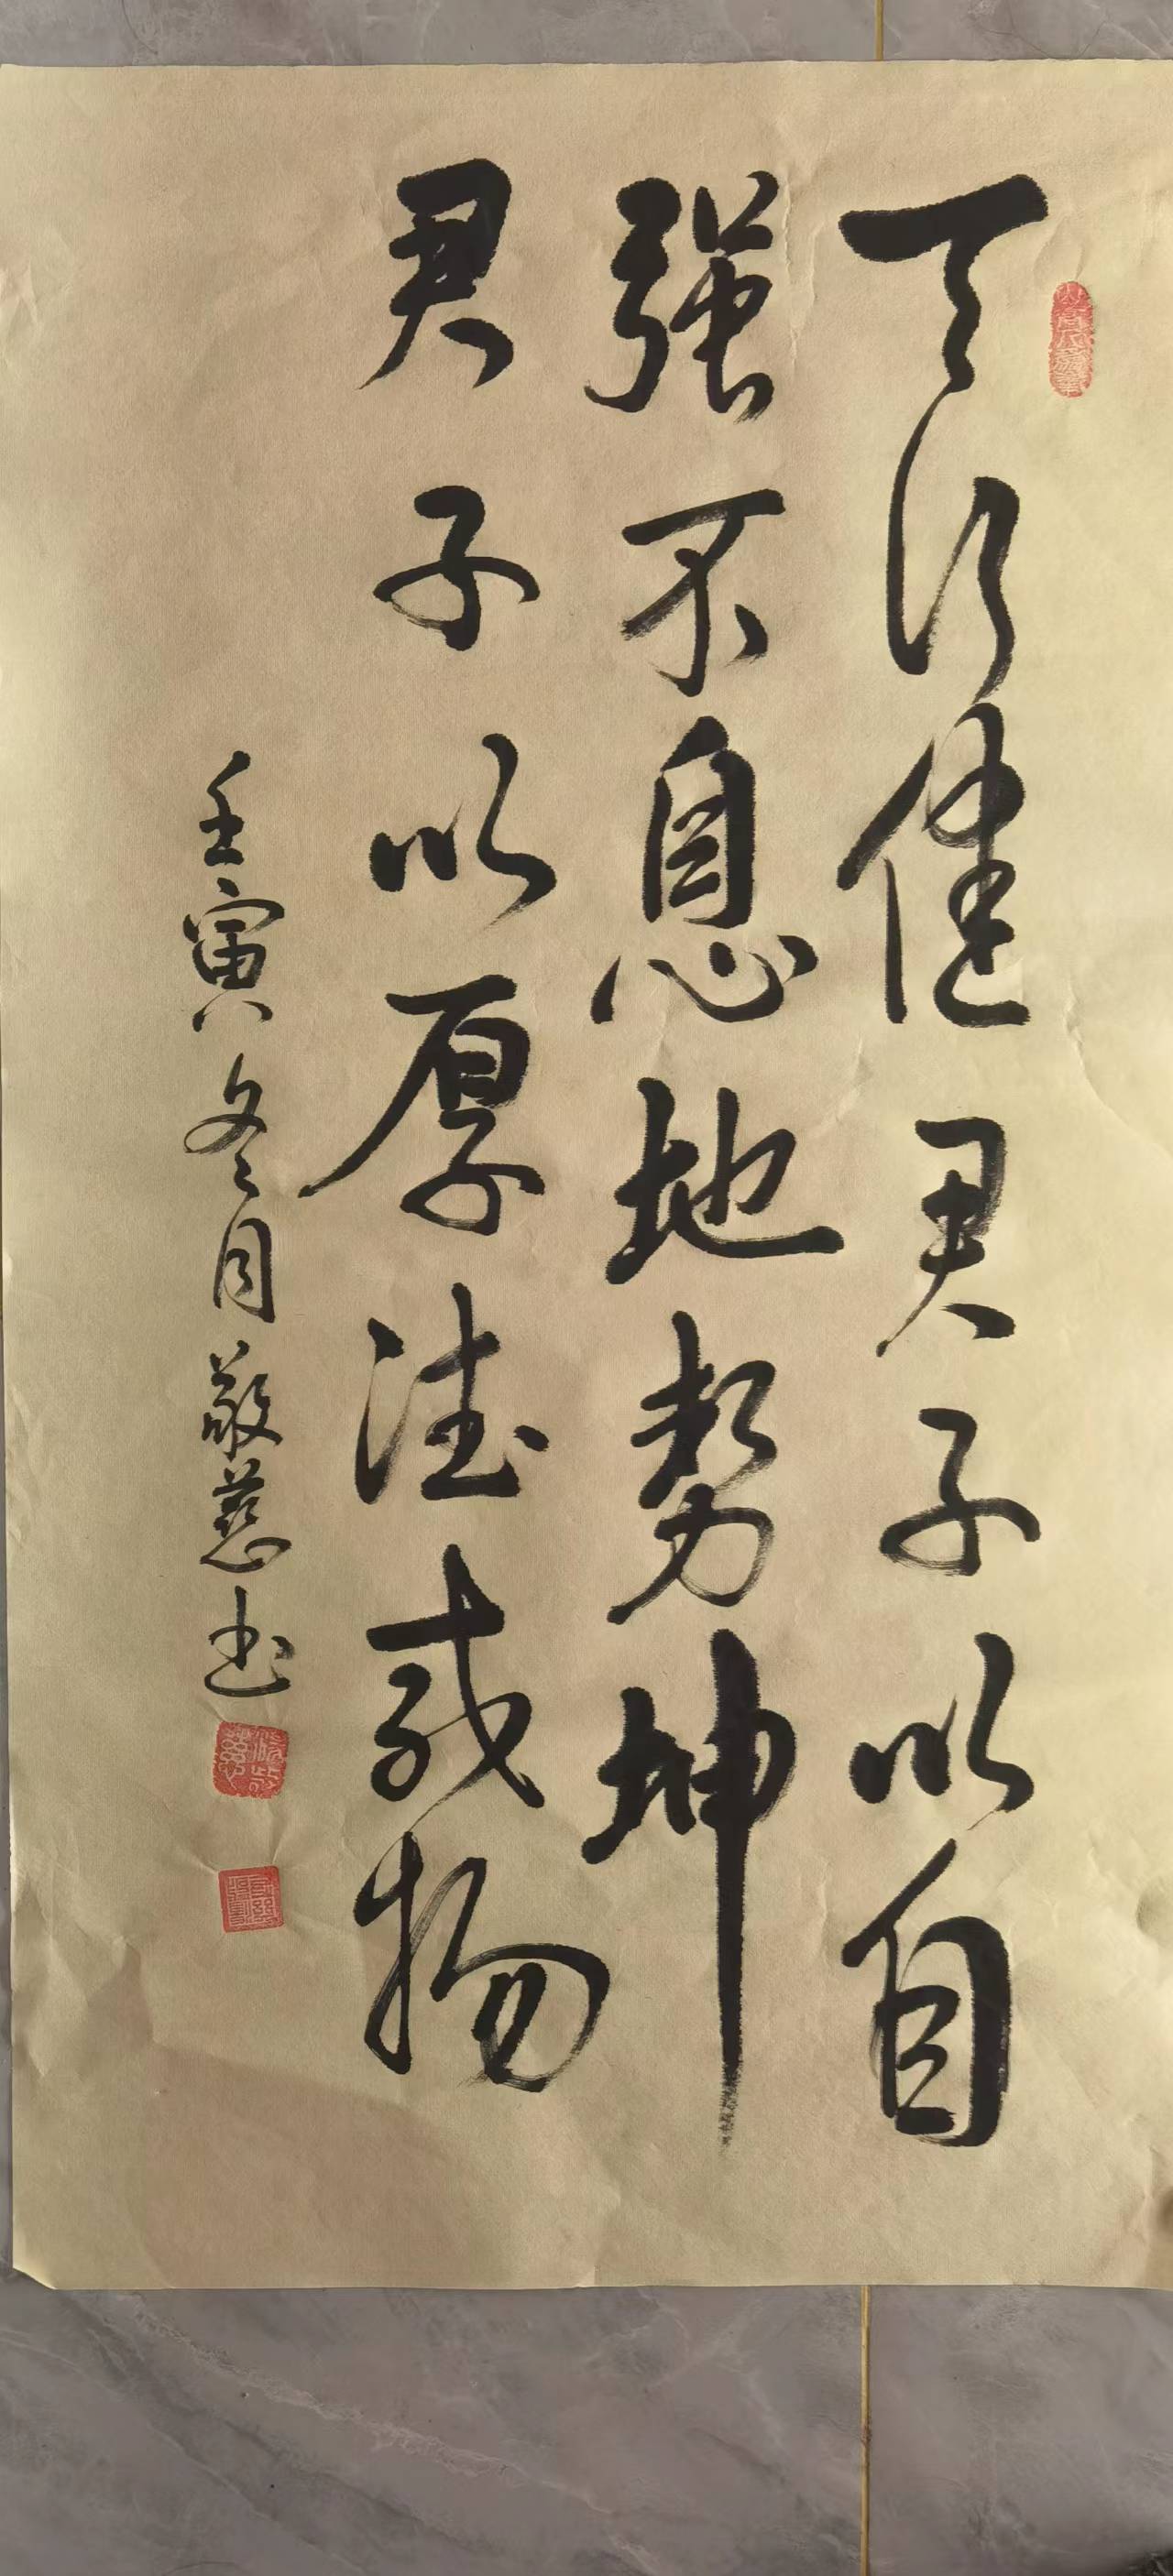 天行健君子以自
强不息地势坤
君子以厚德载物
壬寅冬月敬慈书